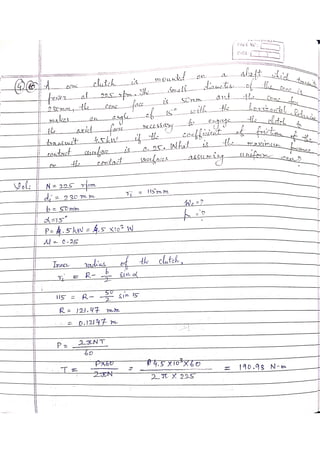 A cone clutch is mounted on a shaft which transmits
power at 225 rpm. The small diameter of the cone is
230mm, the cone face is 50mm and the cone face
makes an angle of 15° with the horizontal.
the axial force necessary to engage the clutch to
transmit 4.5kW if the coefficient of friction of the
contact surface is 0.25. What is the maximum pressure
on the contact surfaces assuming uniform wear?
Sol:
N = 225 rpm
di = 230 mm ri = 115mm
b = 50mm We = ?
α = 15° p = ?
P = 4.5kW = 4.5 x10³ W
μ = 0.25
Inner radius of the clutch,
ri = R - b/2 sin α
115 = R - 50/2 sin 15
R = 121.47 mm
= 0.12147 m
P = 2πNT/60
T = Px60/2πN = 4.5x10³x60/2π x 225 = 190.98 N-m